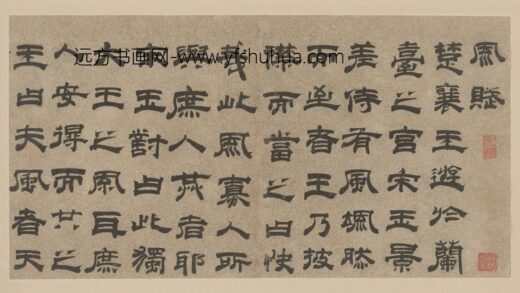 远方书画网-www.yfshuhua.com
風賦
楚襄王遊於蘭
臺之宮宋玉景
差侍有風颯然
而至者王乃披
襟而當之曰快
哉此風寡人所
與庶人共者耶
宋玉對曰此獨
大王之風耳庶
人安得而共之
王曰夫風者天